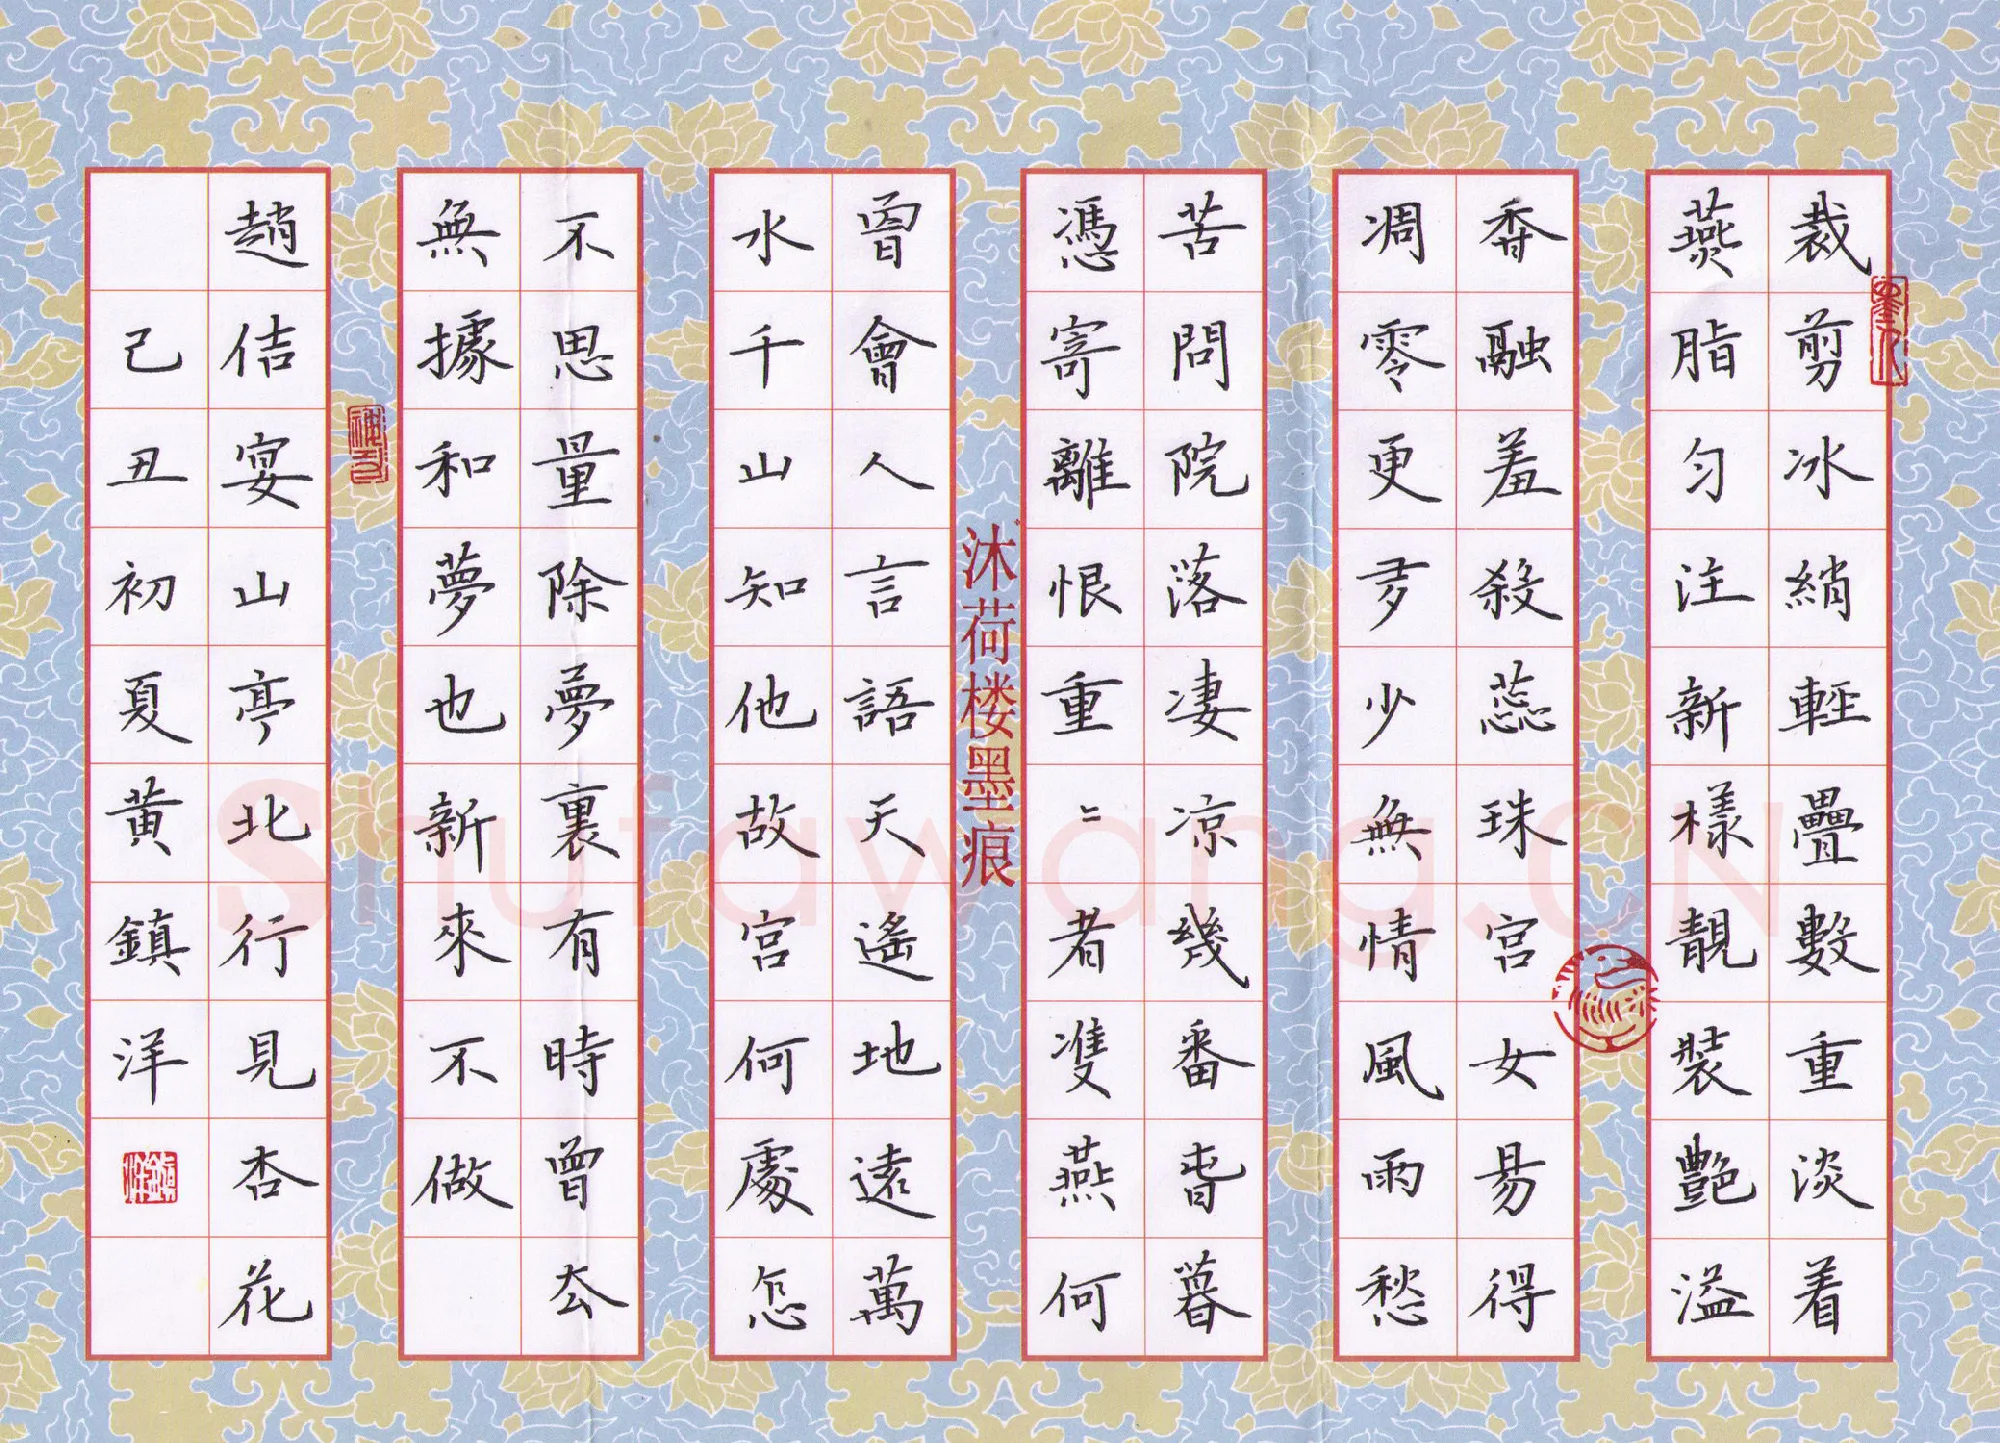 裁剪冰綃輕疊數重淡着
燕脂匀注新樣靚裝艷溢
香融羞殺蕊珠宮女易得
凋零更多少無情風雨愁
苦問院落淒涼幾番春暮
憑寄離恨重〻者雙燕何
曾會人言語天遙地遠萬
水千山知他故宮何處怎
不思量除夢裏有時曾去
無據和夢也新來不做
趙佶宴山亭北行見杏花
己丑初夏黄鎮洋
沐荷楼墨痕
鎮洋
Shufawang.CN